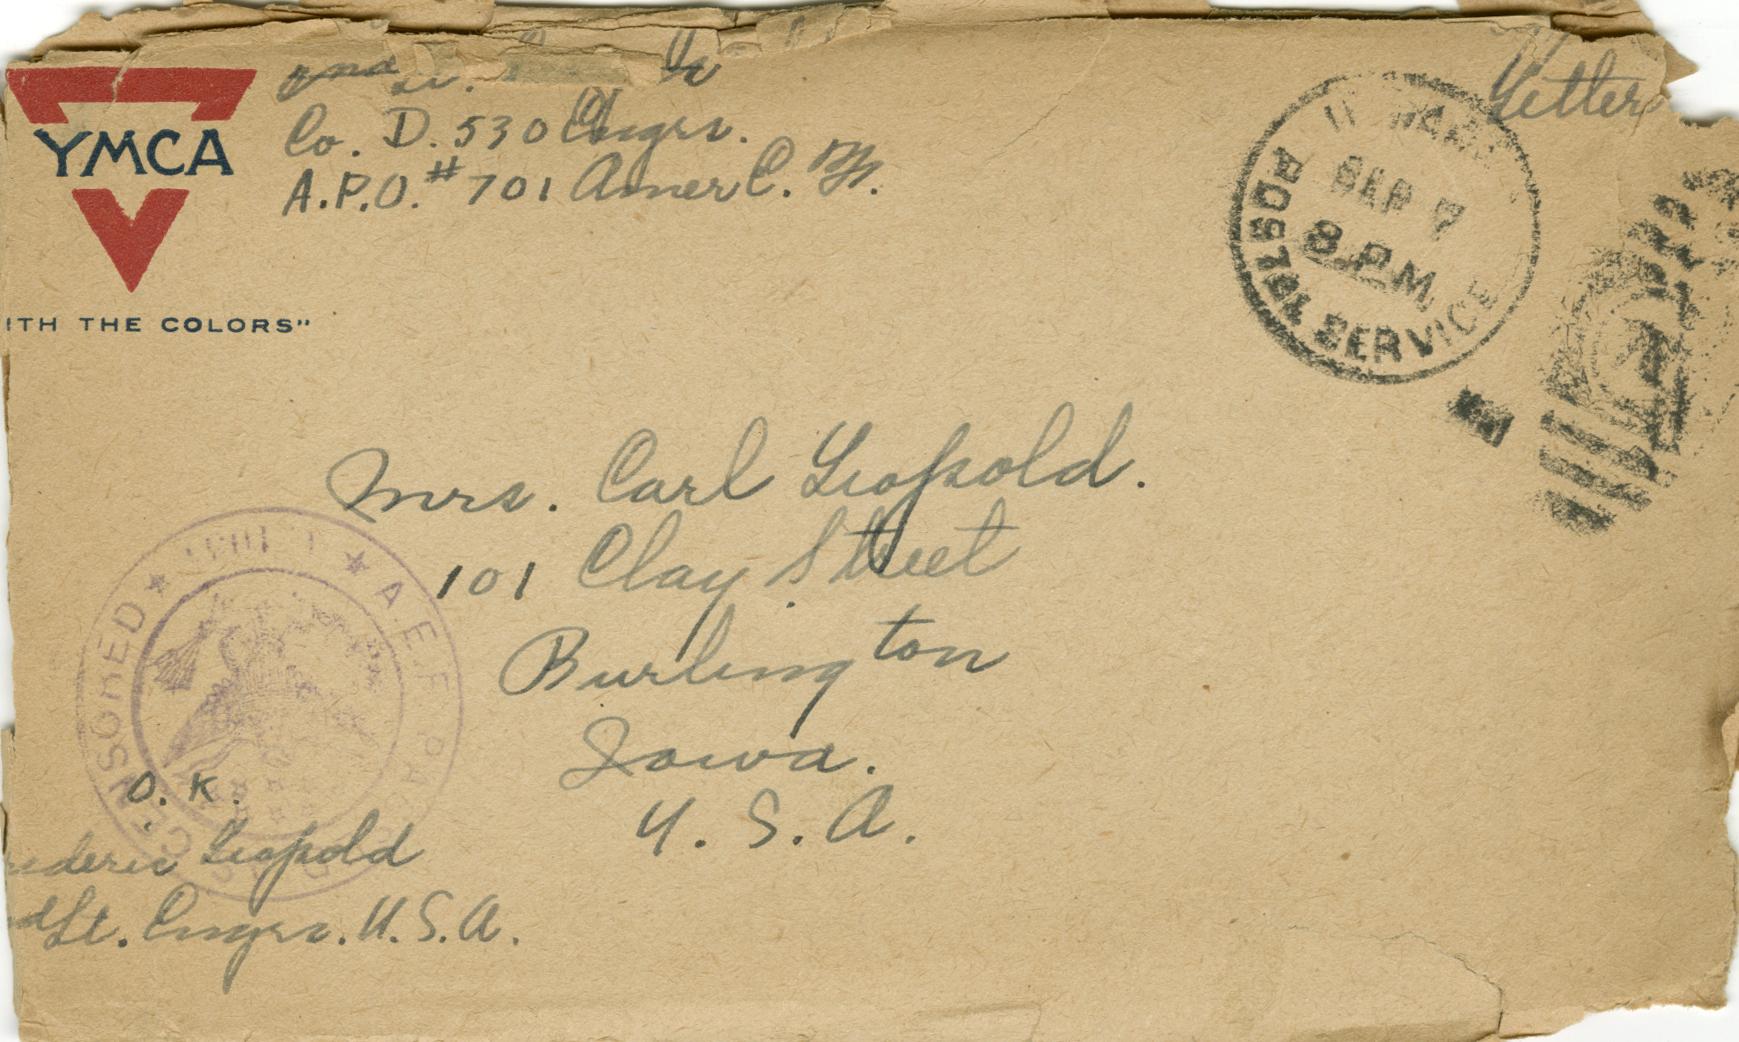 YMCA
ITH THE COLORS"
2nd Lt.
Co. D. 530 Engrs.
A.P.O. #701 Amer E. F.
Letter
SEP 7
8 PM
POSTAL SERVICE
Mrs. Carl Leopold.
101 Clay Street
Burlington
Iowa.
U. S. A.
A.E.F. PASSED
CENSORED
O. K.
ederic Leopold
nd Lt. Engrs. U.S.A.